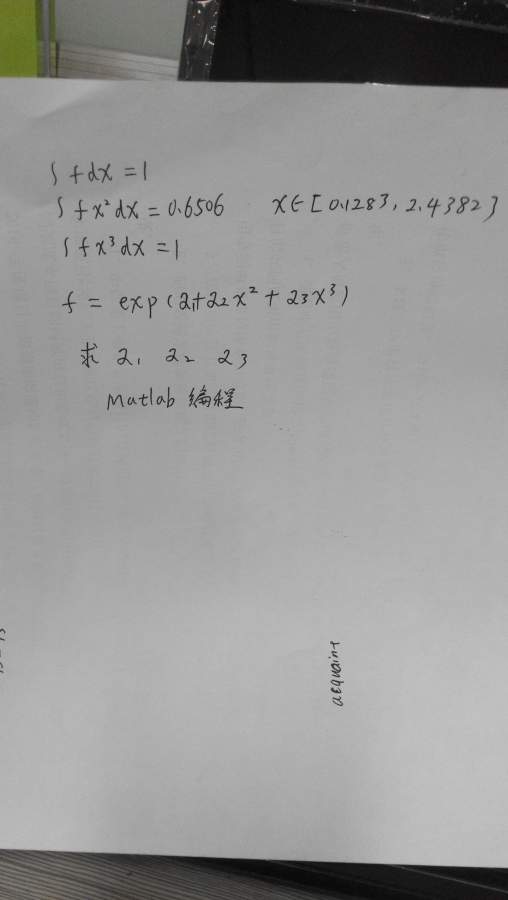 ∫fdx=1
∫fx²dx=0.6506 x∈[0.1283, 2.4382]
∫fx³dx=1
f=exp(2₁+2₂x²+2₃x³)
求 2₁ 2₂ 2₃
Matlab 编程
acquaint